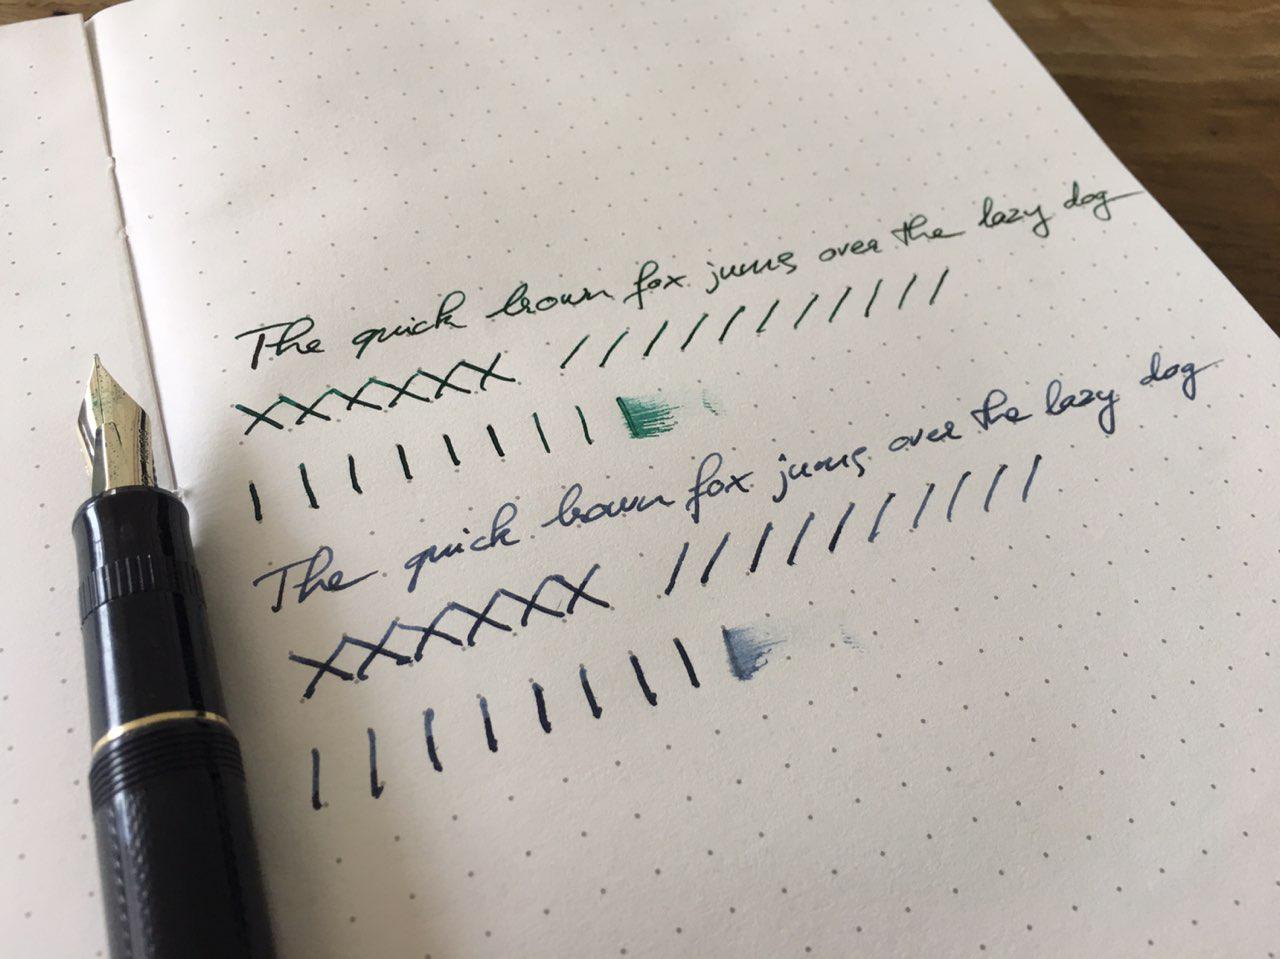 The quick brown fox jums over the lazy dog
XXXXXX
The quick brown fox jums over the lazy dog
XXXXXX